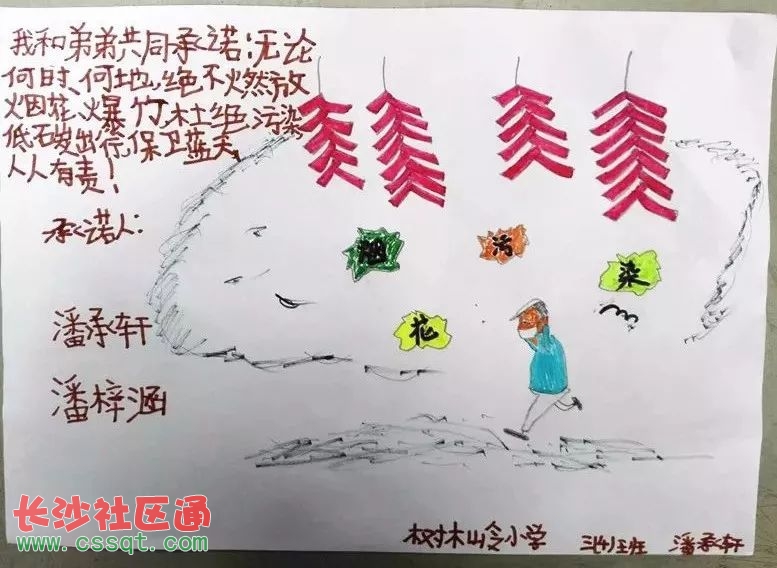 我和弟弟共同承诺:无论
何时、何地,绝不燃放
烟花、爆竹,杜绝污染
低碳出行,保卫蓝天,
人人有责!
承诺人:
潘承轩
潘梓涵
烟
污
染
花
树木岭小学 三(4)班 潘承轩
长沙社区通
www.cssqt.com